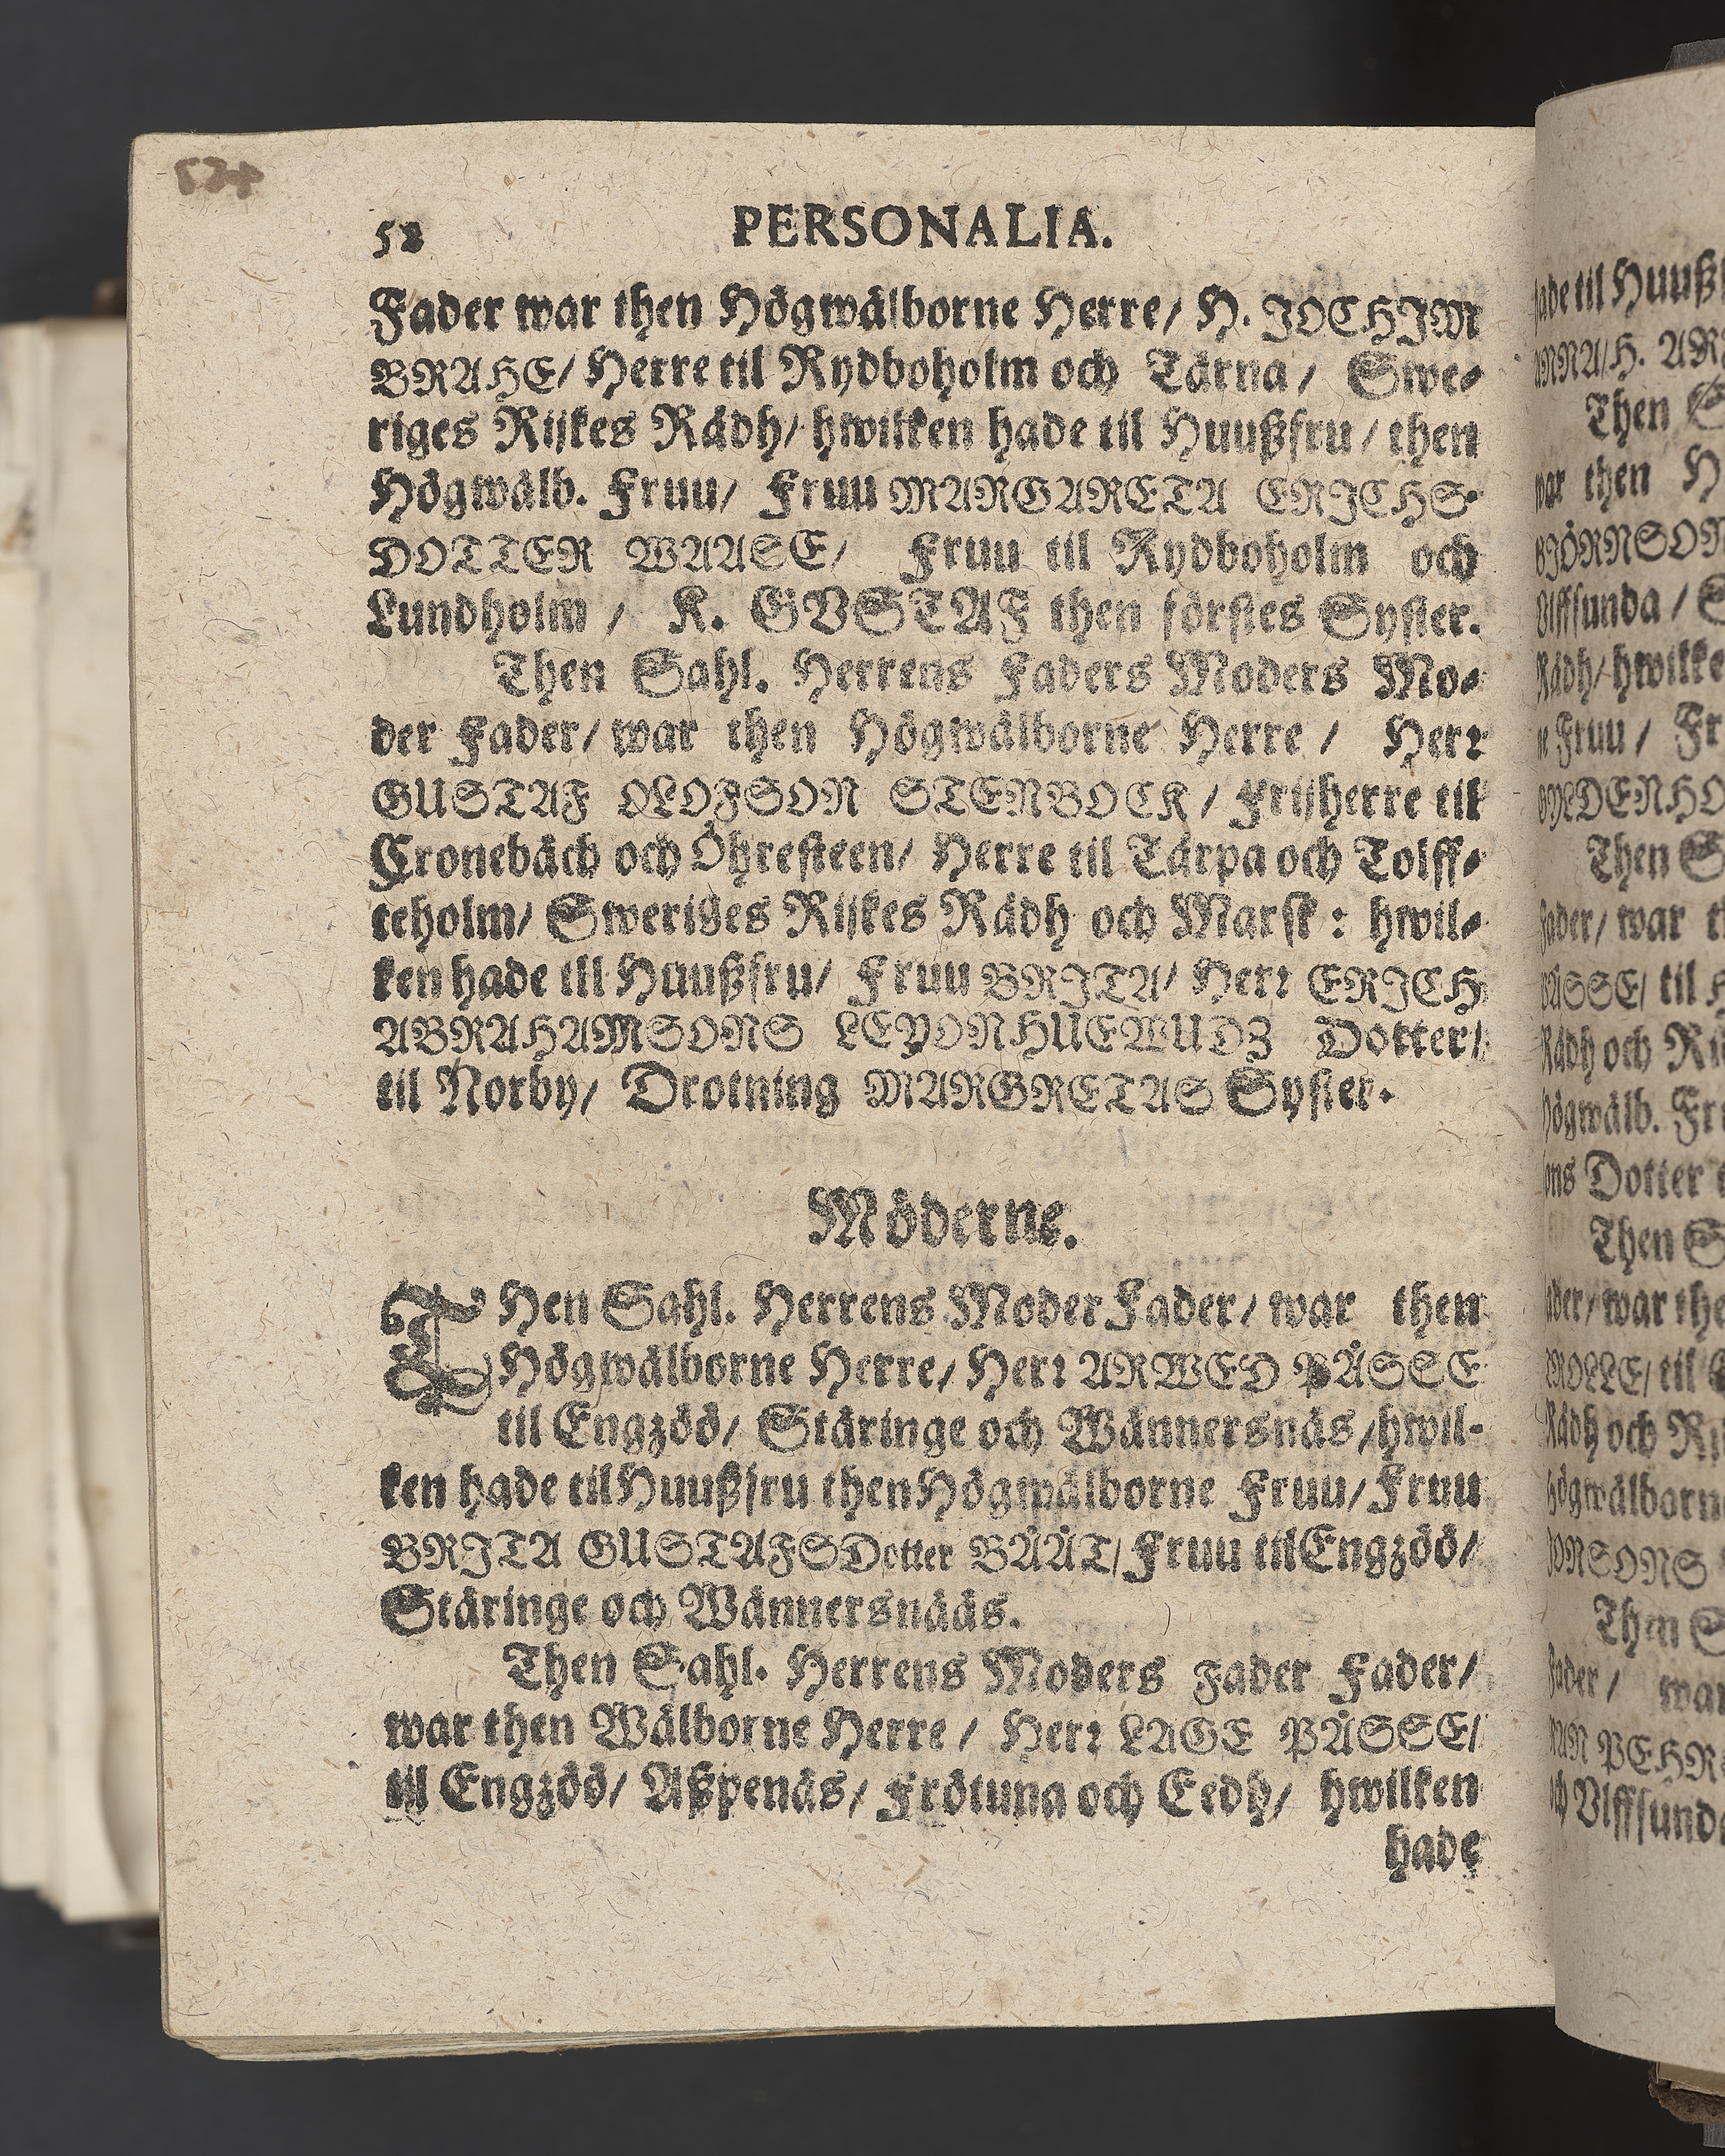 524
58 PERSONALIA.
Fader war then Högwälborne Herre/ H. JOCHIM
BRAHE/ Herre til Rydboholm och Tärna/ Swe-
riges Rijkes Rådh/ hwilken hade til Huußfru/ then
Högwälb. Fruu/ Fruu MARGARETA ERICHS-
DOTTER WAASE/ Fruu til Rydboholm och
Lundholm/ K. GVSTAF then förstes Syster.
Then Sahl. Herrens Faders Moders Mo-
der Fader/ war then Högwälborne Herre/ Herr
GUSTAF OLOFSON STENBOCK/ Frijherre til
Cronebäck och Öhresteen/ Herre til Tärpa och Tolff-
teholm/ Sweriges Rijkes Rådh och Marsk: hwil-
ken hade til Huußfru/ Fruu BRITA/ Herr ERICH
ABRAHAMSONS LEYONHUEWUDZ Dotter/
til Norby/ Drotning MARGRETAS Syster.
Möderne.
THen Sahl. Herrens Moder Fader/ war then
Högwälborne Herre/ Herr ARWED PÅSSE
til Engzöö/ Stäringe och Wännersnäs/ hwil-
ken hade til Huußfru then Högwälborne Fruu/ Fruu
BRITA GUSTAFSDotter BÅÅT/ Fruu til Engzöö/
Stäringe och Wännersnääs.
Then Sahl. Herrens Moders Fader Fader/
war then Wälborne Herre/ Herr LAGE PÅSSE/
til Engzöö/ Aßpenäs/ Frötuna och Eedh/ hwilken
hade
ade til Huußf
Then
war then H
BJÖRNSON
Ulffsunda/
Rådh/ hwilke
e Fruu/ Fr
GYLDENHO
Then S
Fader/ war
til
Rådh och Ri
Högwälb. Fr
ons Dotter
Then S
ader/ war the
til
Rådh och Ri
högwälborn
JONSONS
Then S
Fader/ war
PEHRS
och Vlffsund